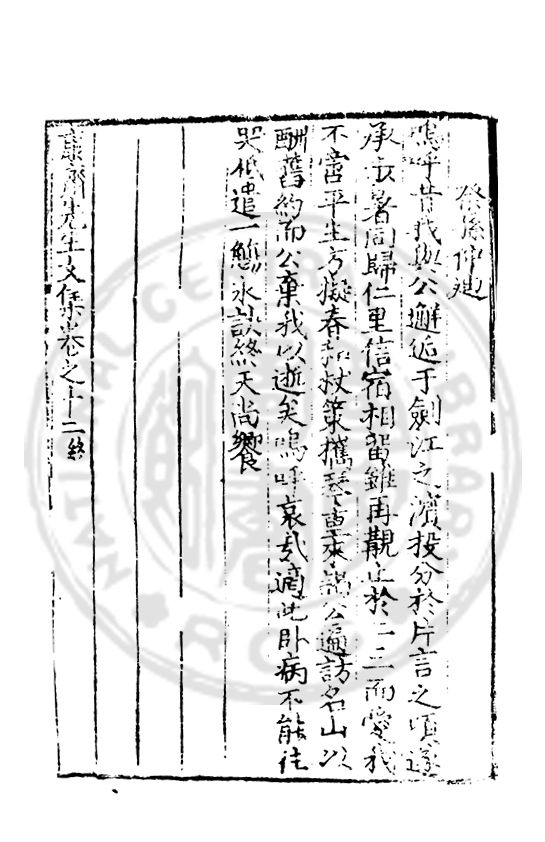 祭孫仲迪
嗚呼昔我與公邂逅于劍江之濱投分於片言之頃遂
承衣暑同歸仁里信宿相留雖再覯止於一二而愛我
不啻平生方擬春和杖策攜琴重來謁公遍訪名山以
酬舊約而公棄我以逝矣嗚呼哀哉適此卧病不能往
哭祇遣一慟永訣終天尚饗
康齋先生文集卷之十二終